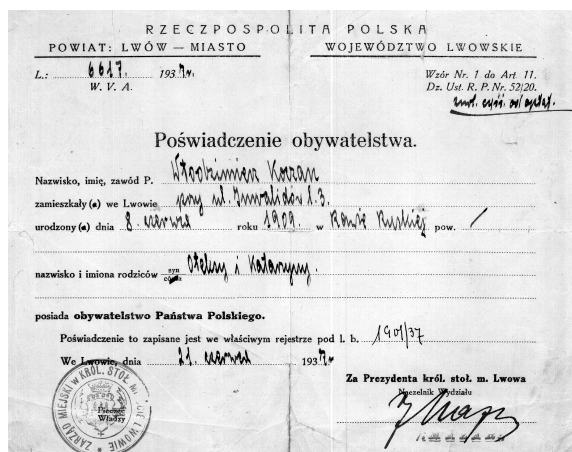 RZECZPOSPOLITA POLSKA
POWIAT: LWÓW — MIASTO WOJEWÓDZTWO LWOWSKIE
L.: 6617 1937r.
W. V. A.
Wzór Nr. 1 do Art. 11.
Dz. Ust. R. P. Nr. 52/20.
Poświadczenie obywatelstwa.
Nazwisko, imię, zawód P. Włodzimierz
zamieszkały(a) we Lwowie przy ul. Inwalidów l. 3.
urodzony(a) dnia 8. czerwca roku 1909 w Rawie Ruskiej pow. /
nazwisko i imiona rodziców syn córka i Katarzyny.
posiada obywatelstwo Państwa Polskiego.
Poświadczenie to zapisane jest we właściwym rejestrze pod l. b. 1901/37
We Lwowie, dnia 21. czerwca 1937r.
Za Prezydenta król. stoł. m. Lwowa
Naczelnik Wydziału
ZARZĄD MIEJSKI W KRÓL. STOŁ. LWOWIE
Pieczęć
Władzy